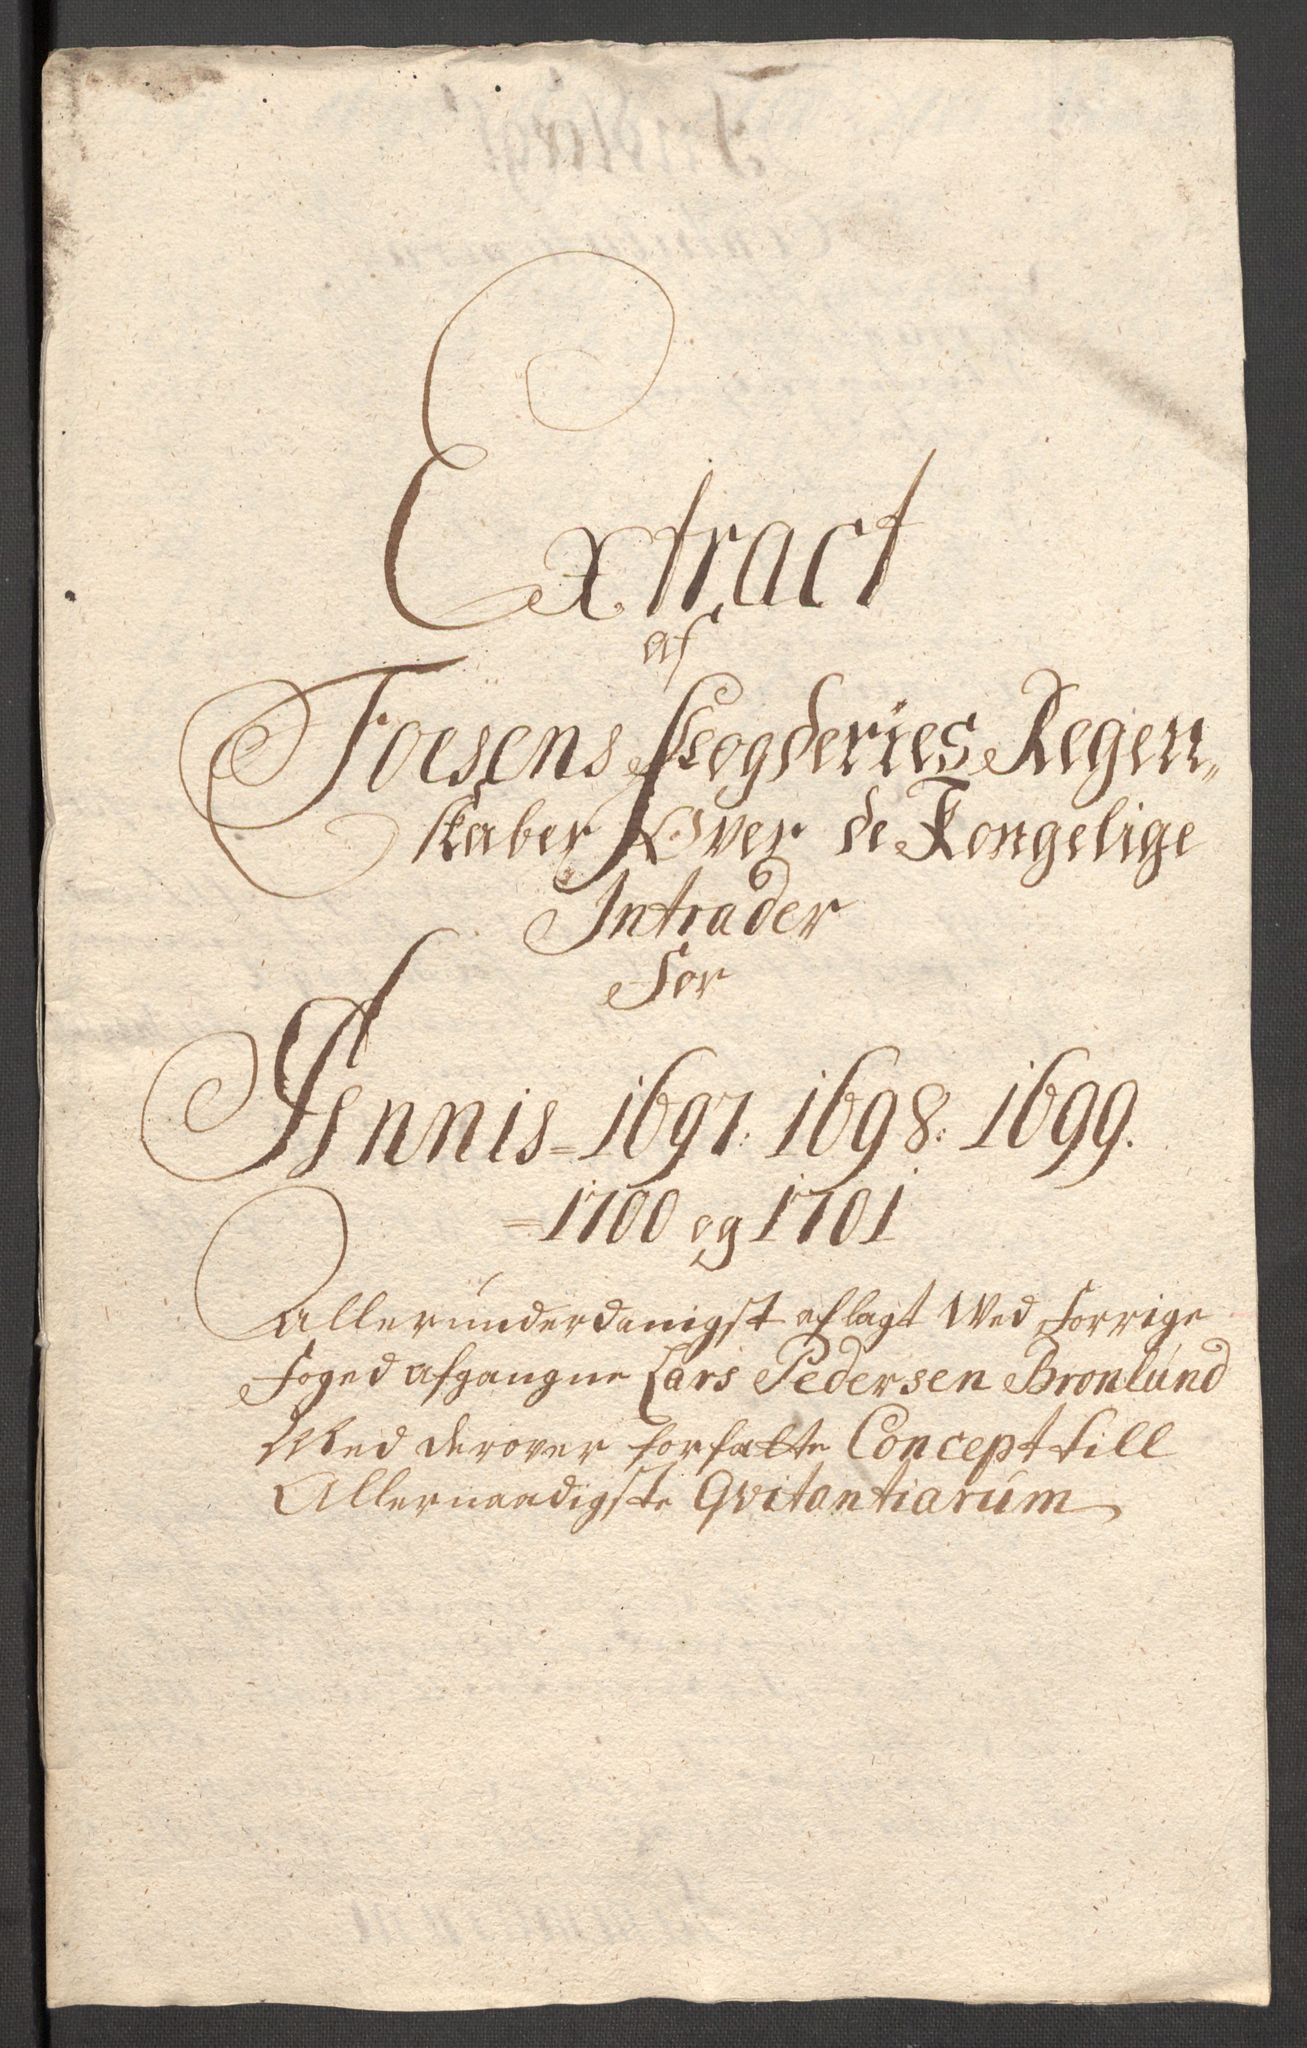 Extract
af
Foesens Fogderies Regen„
skaber Over de Kongelige
Intrader
For
Annis = 1697: 1698: 1699.
= 1700 og 1701
Allerunderdanigst aflagt Wed forrige
Foged afgangne Lars Pedersen Bronlund
Med derover forfatte Concept till
Allernaadigste Qvitantiarum